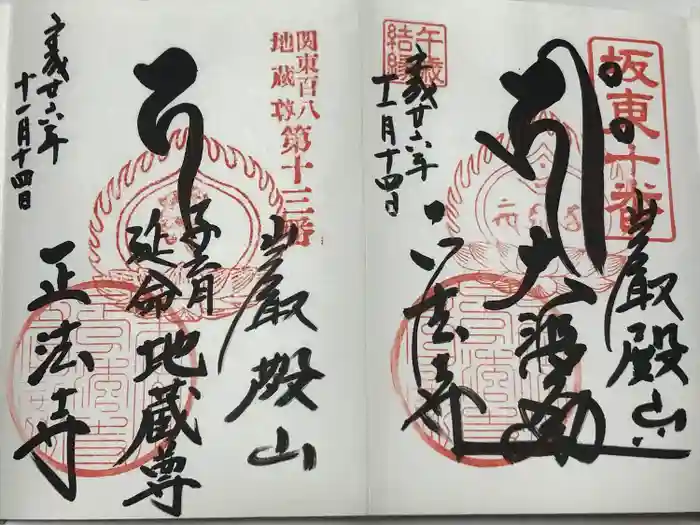 坂東十番
午歳
結縁
巌殿山
大悲殿
正法寺
平成廿六年
十一月十四日
関東百八
地蔵尊
第十三番
巌殿山
子育
延命
地蔵尊
正法寺
平成廿六年
十一月十四日